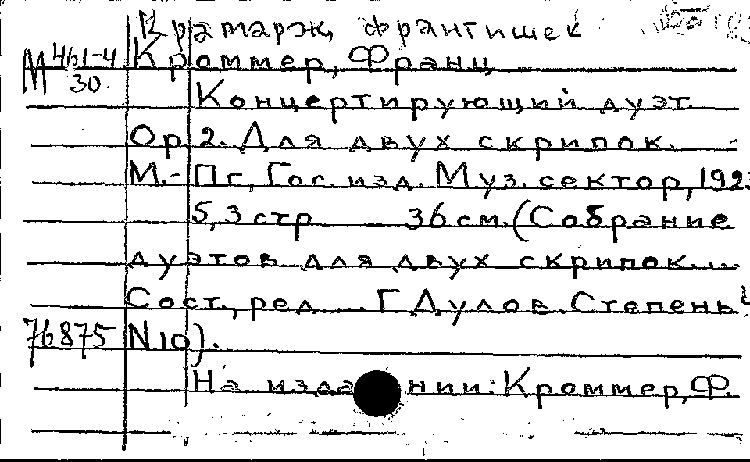 Крамарж, Франтишек
М 461-4
30
Кроммер, Франц
Концертирующий дуэт.
Ор. 2. Для двух скрипок.
М.-Пг, Гос. изд. Муз. сектор, 1923
5, 3 стр 36 см. (Собрание
дуэтов для двух скрипок...
Сост., ред. ... Г Дулов. Степень
76875 N 10).
На издании: Кроммер, Ф.